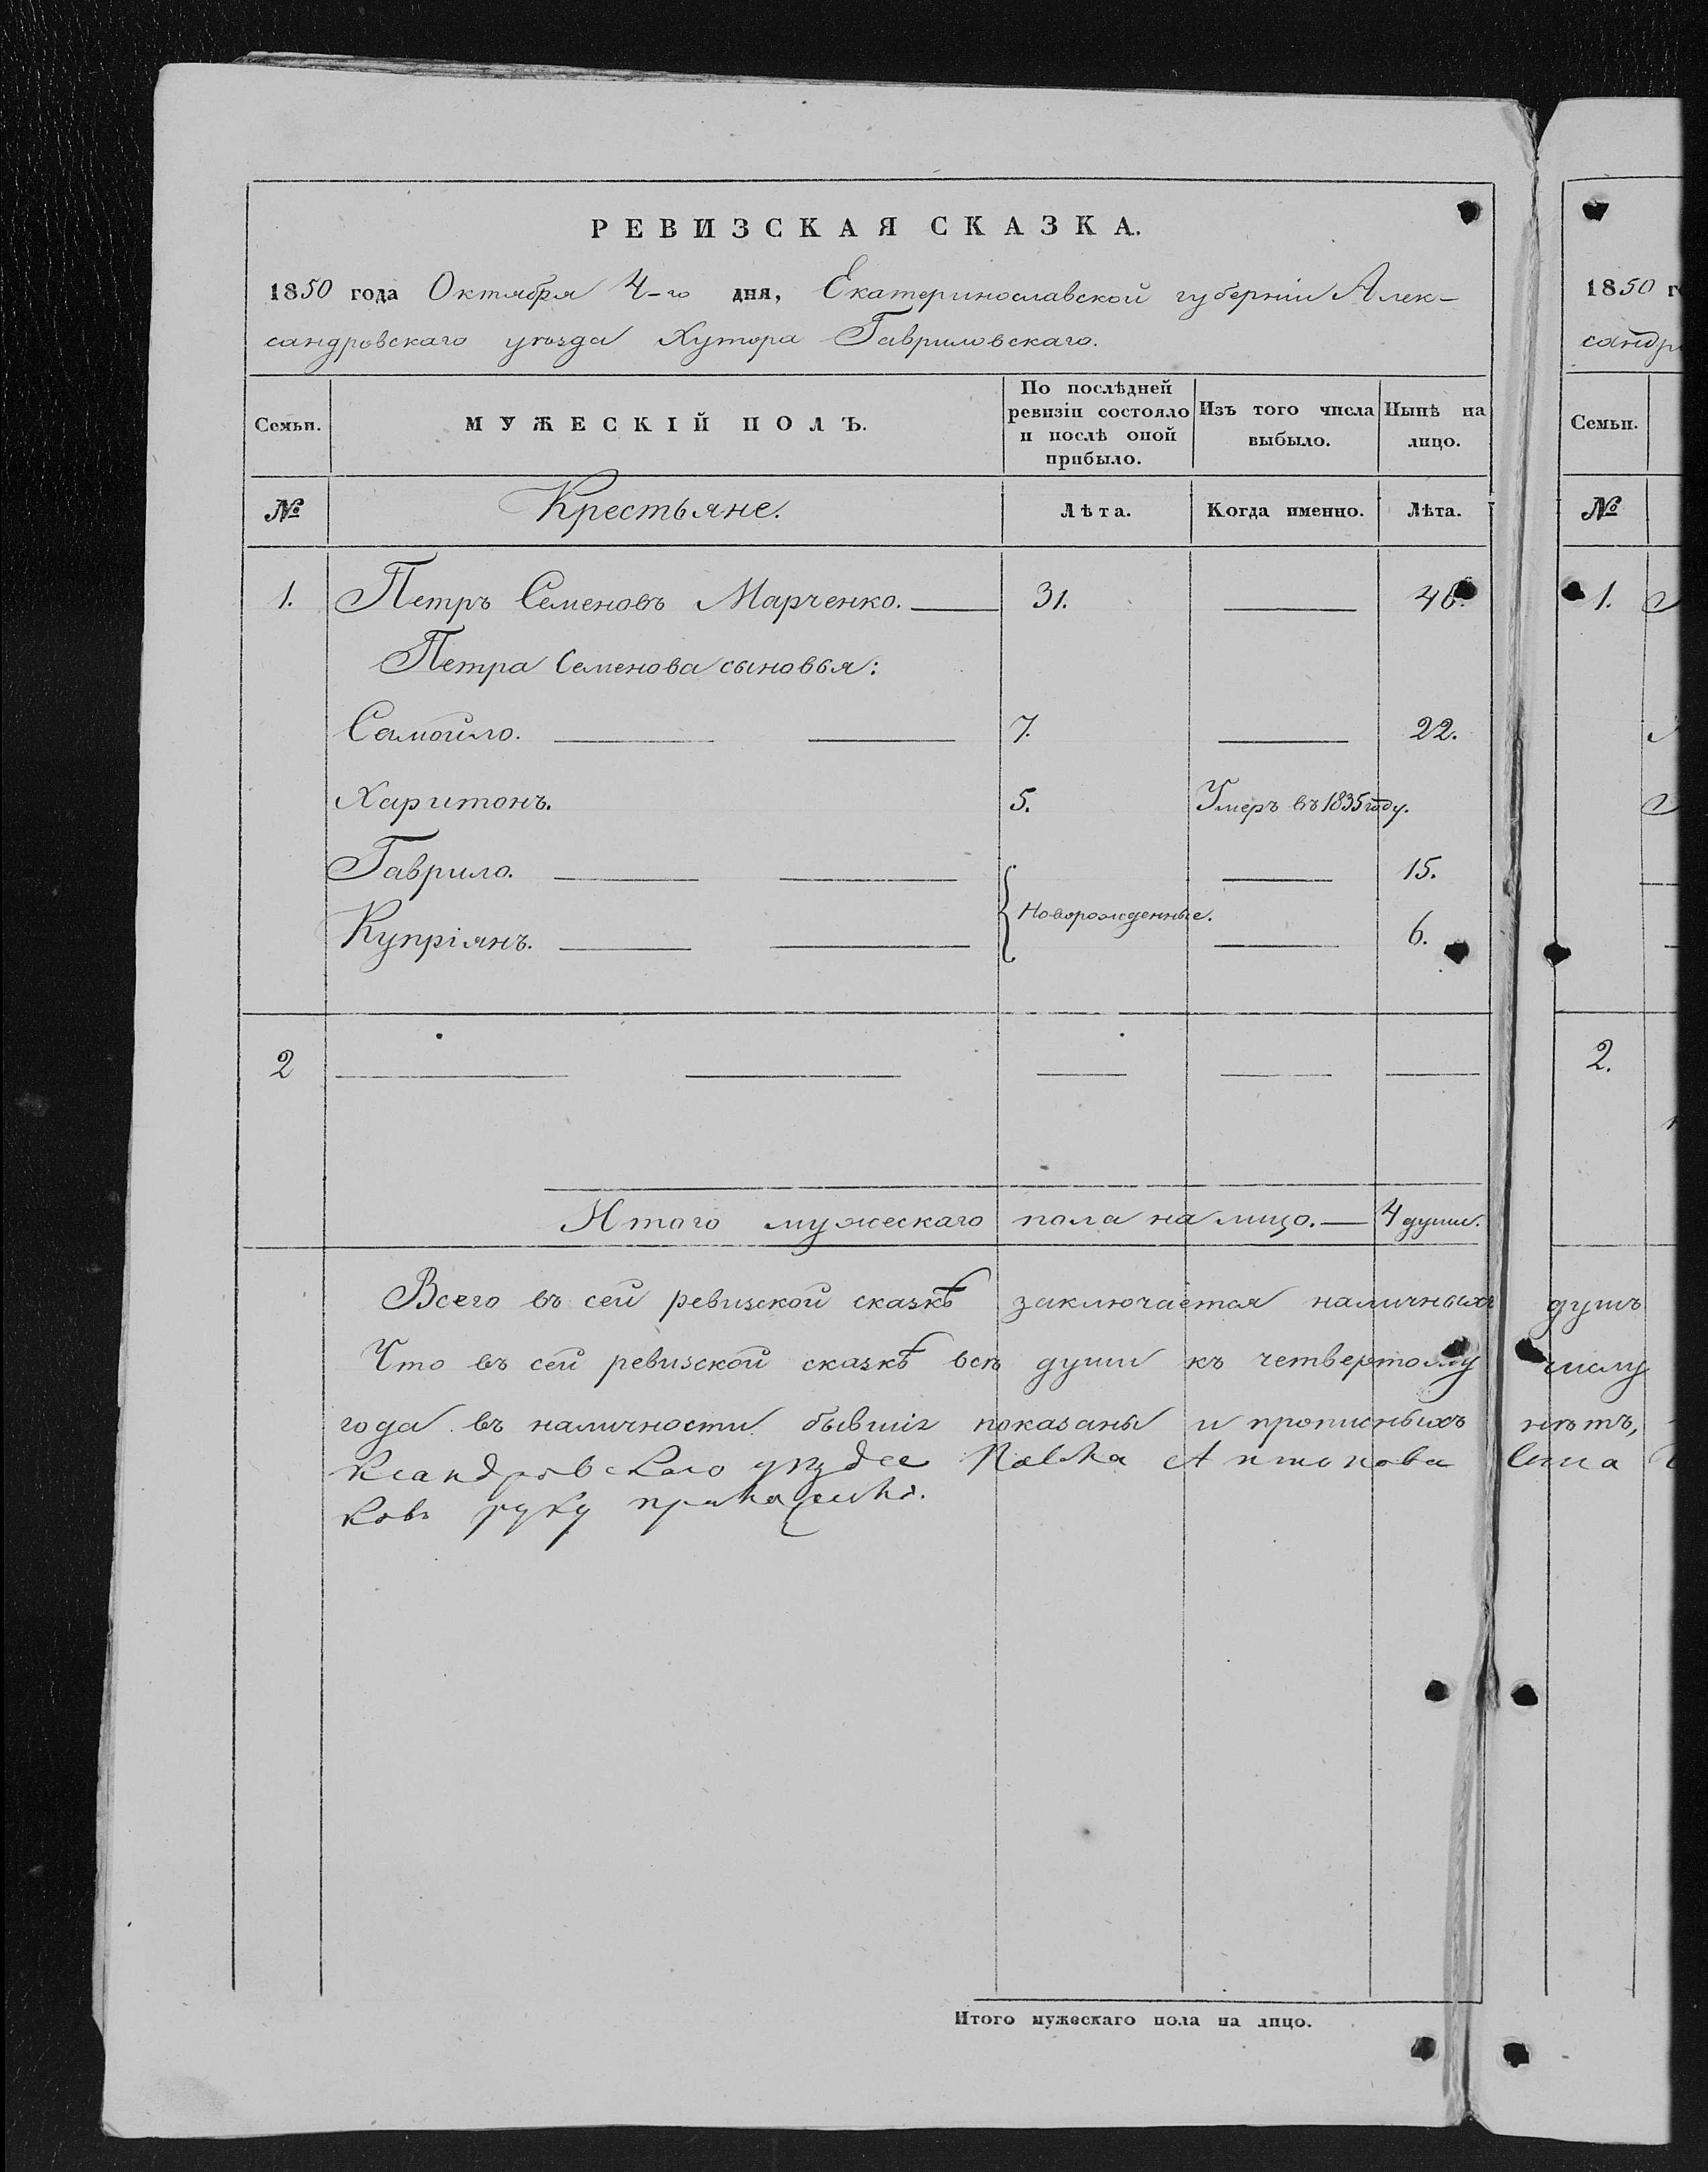 РЕВИЗСКАЯ СКАЗКА.
1850 года Октября 4-го дня, Екатеринославской губерніи Алек-
сандровскаго уѣзда Хутора Гавриловскаго.
Семьи. МУЖЕСКІЙ ПОЛЪ. По послѣдней ревизіи состояло и послѣ оной прибыло. Изъ того числа выбыло. Нынѣ на лицо.
№ Крестьяне. Лѣта. Когда именно. Лѣта.
1. Петръ Семеновъ Марченко. 31. — 46.
Петра Семенова сыновья:
Самойло. 7. — 22.
Харитонъ. 5. Умеръ въ 1835 году.
Гаврило. — 15.
Новорожденные.
Купріянъ. — 6.
2 — — — —
Итого мужескаго пола на лицо. — 4 души.
Всего въ сей ревизской сказкѣ заключается наличныхъ душъ
Что въ сей ревизской сказкѣ всѣ души къ четвертому числу
года въ наличности бывшіе показаны и прописныхъ нѣтъ,
ксандровскаго уѣзда Павла Антонова
ковъ руку приложилъ.
Итого мужескаго пола на лицо.
1850 г
сандр
Семьи.
№
1.
2.